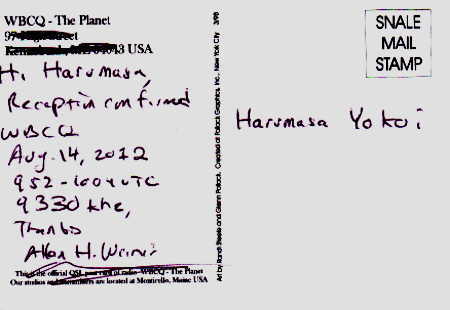 WBCQ - The Planet
97 Street
ME 04043 USA
Hi Harumasa,
Reception confirmed
WBCQ
Aug. 14, 2012
952 - 1004 UTC
9330 khz,
Thanks
Allan H. Weiner
This is the official QSL post card of radio WBCQ - The Planet
Our studios and transmitters are located at Monticello, Maine USA
Art by Randi Steele and Glenn Pollock. Created at Pollock Graphics, Inc., New York City 3/98
SNALE
MAIL
STAMP
Harumasa Yokoi